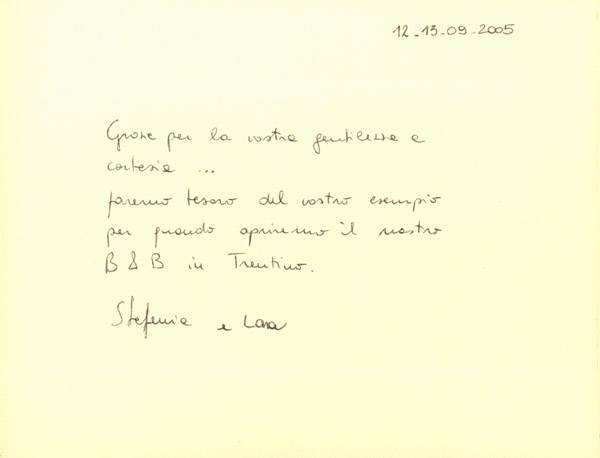 12-13-09-2005
Grazie per la vostra gentilezza e
cortesia ...
faremo tesoro del vostro esempio
per quando apriremo il nostro
B & B in Trentino.
Stefania e Lara